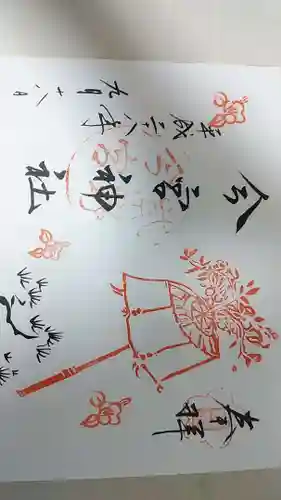 奉拝
今宮神社
平成二八年
九月十八日